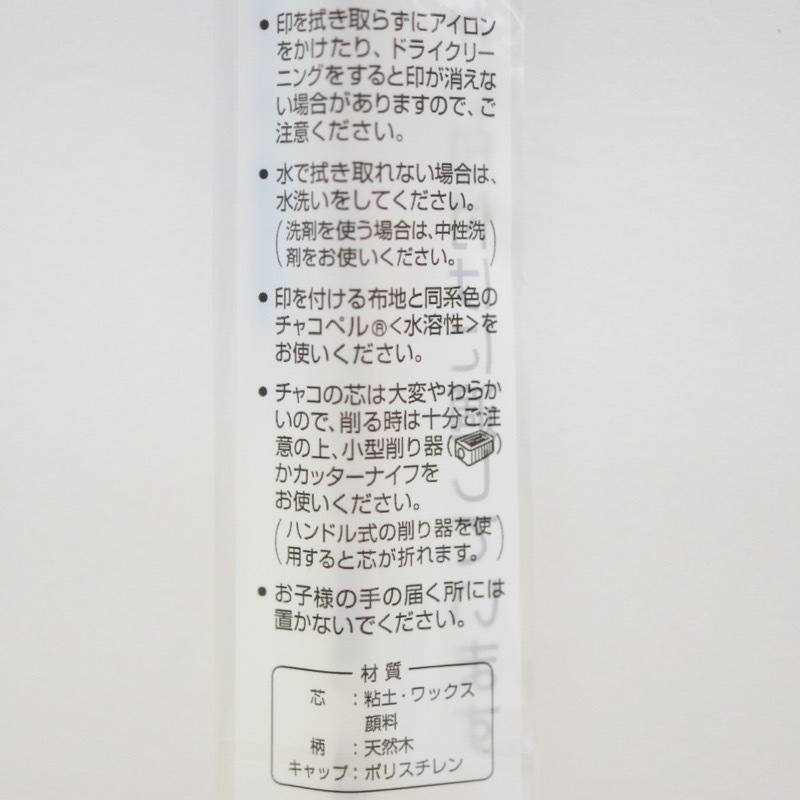 • 印を拭き取らずにアイロン
をかけたり、ドライクリー
ニングをすると印が消えな
い場合がありますので、ご
注意ください。
• 水で拭き取れない場合は、
水洗いをしてください。
(洗剤を使う場合は、中性洗
剤をお使いください。)
• 印を付ける布地と同系色の
チャコペル®<水溶性>を
お使いください。
• チャコの芯は大変やわらか
いので、削る時は十分ご注
意の上、小型削り器( )
かカッターナイフを
お使いください。
(ハンドル式の削り器を使
用すると芯が折れます。)
• お子様の手の届く所には
置かないでください。
材質
芯 : 粘土・ワックス
顔料
柄 : 天然木
キャップ : ポリスチレン